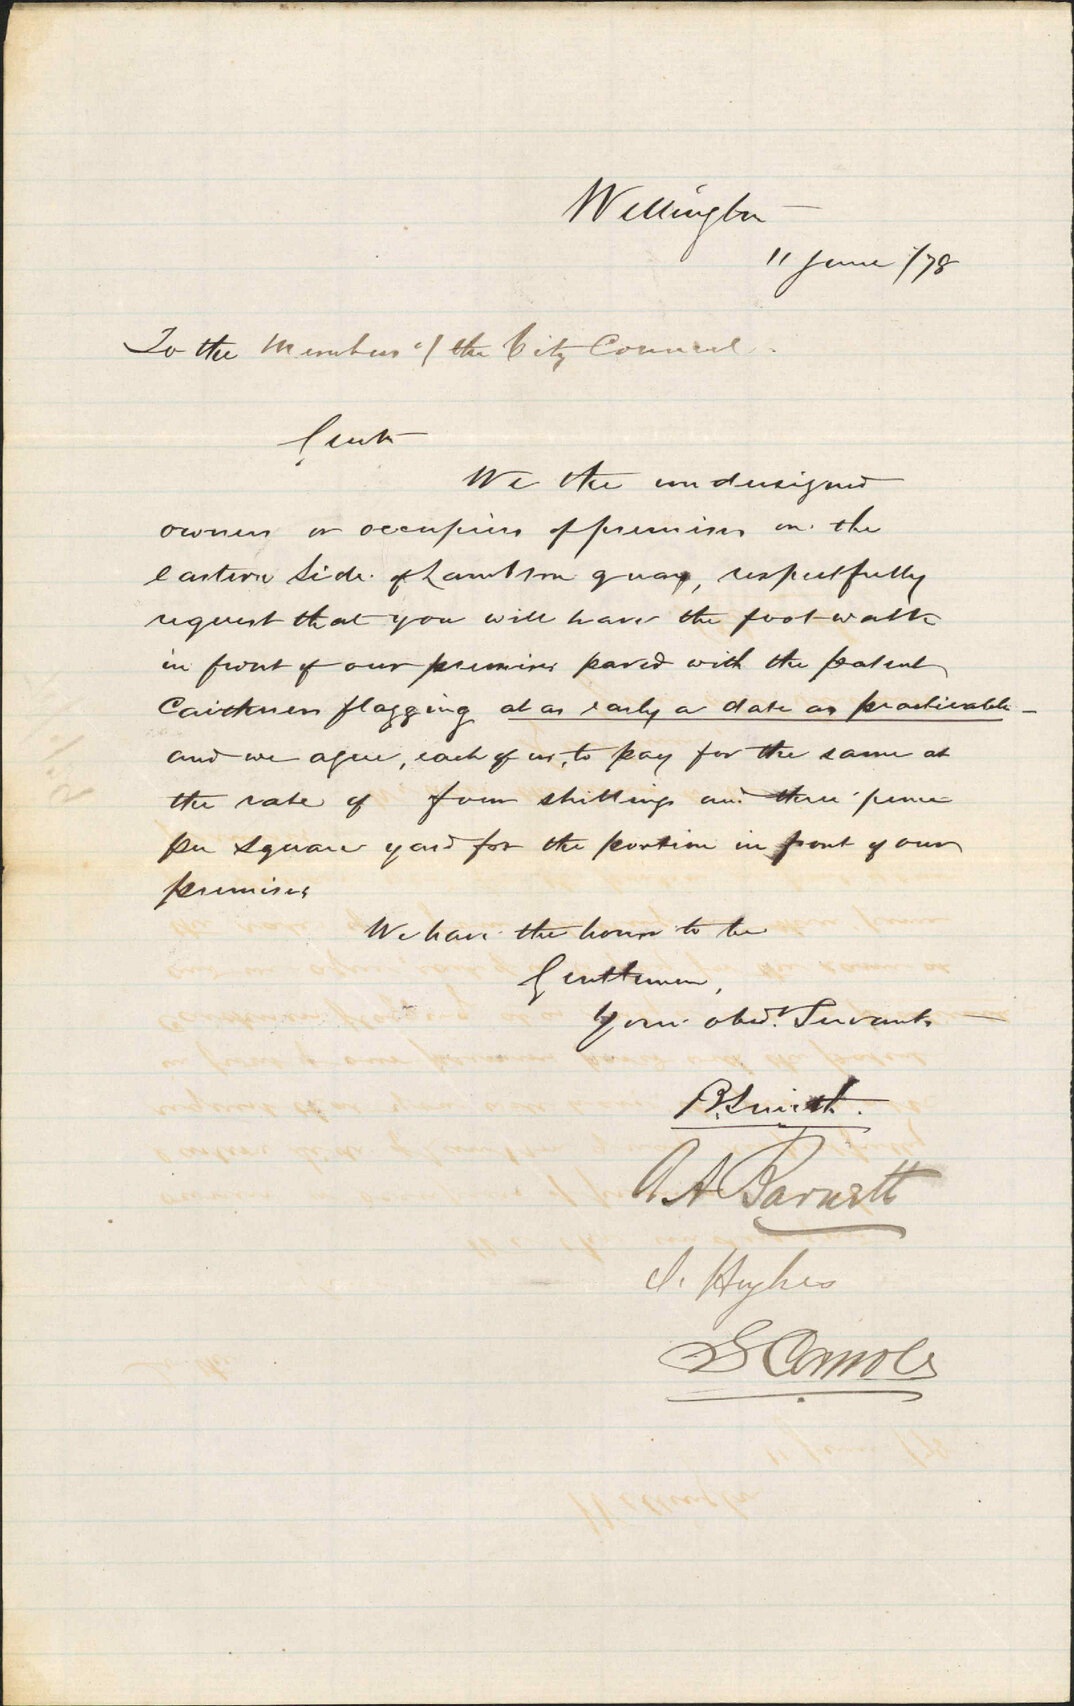 Wellington
11 June /78
To the Members of the City Council.
Gents
We the undersigned
owners or occupiers of premises on the
eastern side of Lambton quay, respectfully
request that you will have the foot-walk
in front of our premises paved with the patent
Caithness flagging at as early a date as practicable -
and we agree, each of us, to pay for the same at
the rate of four shillings and three pence
per square yard for the portion in front of our
premises
We have the honor to be
Gentlemen,
Your obedt. Servants
B. Smith.
A A Barnett
J. Hughes